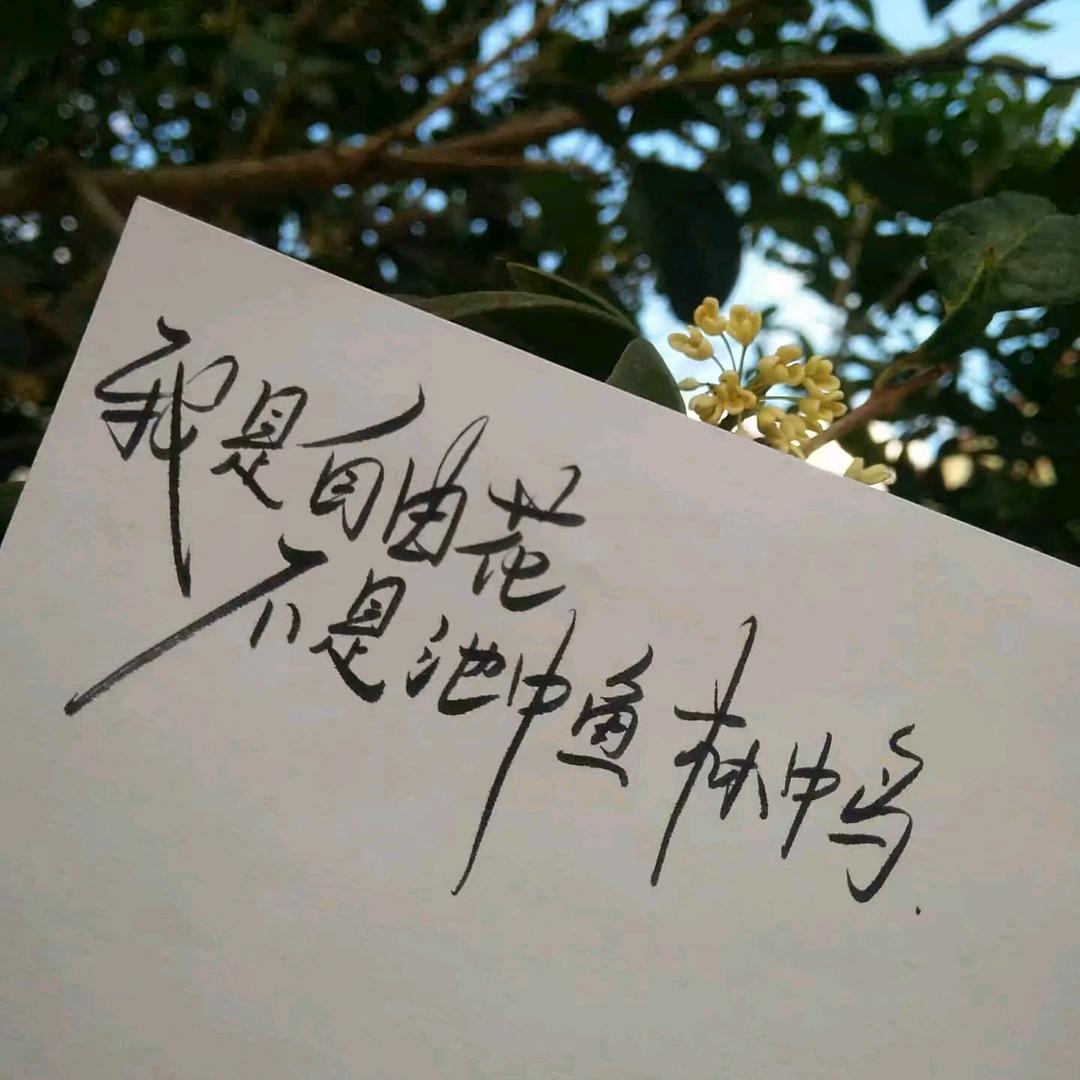 我是自由花
不是池中鱼林中鸟.